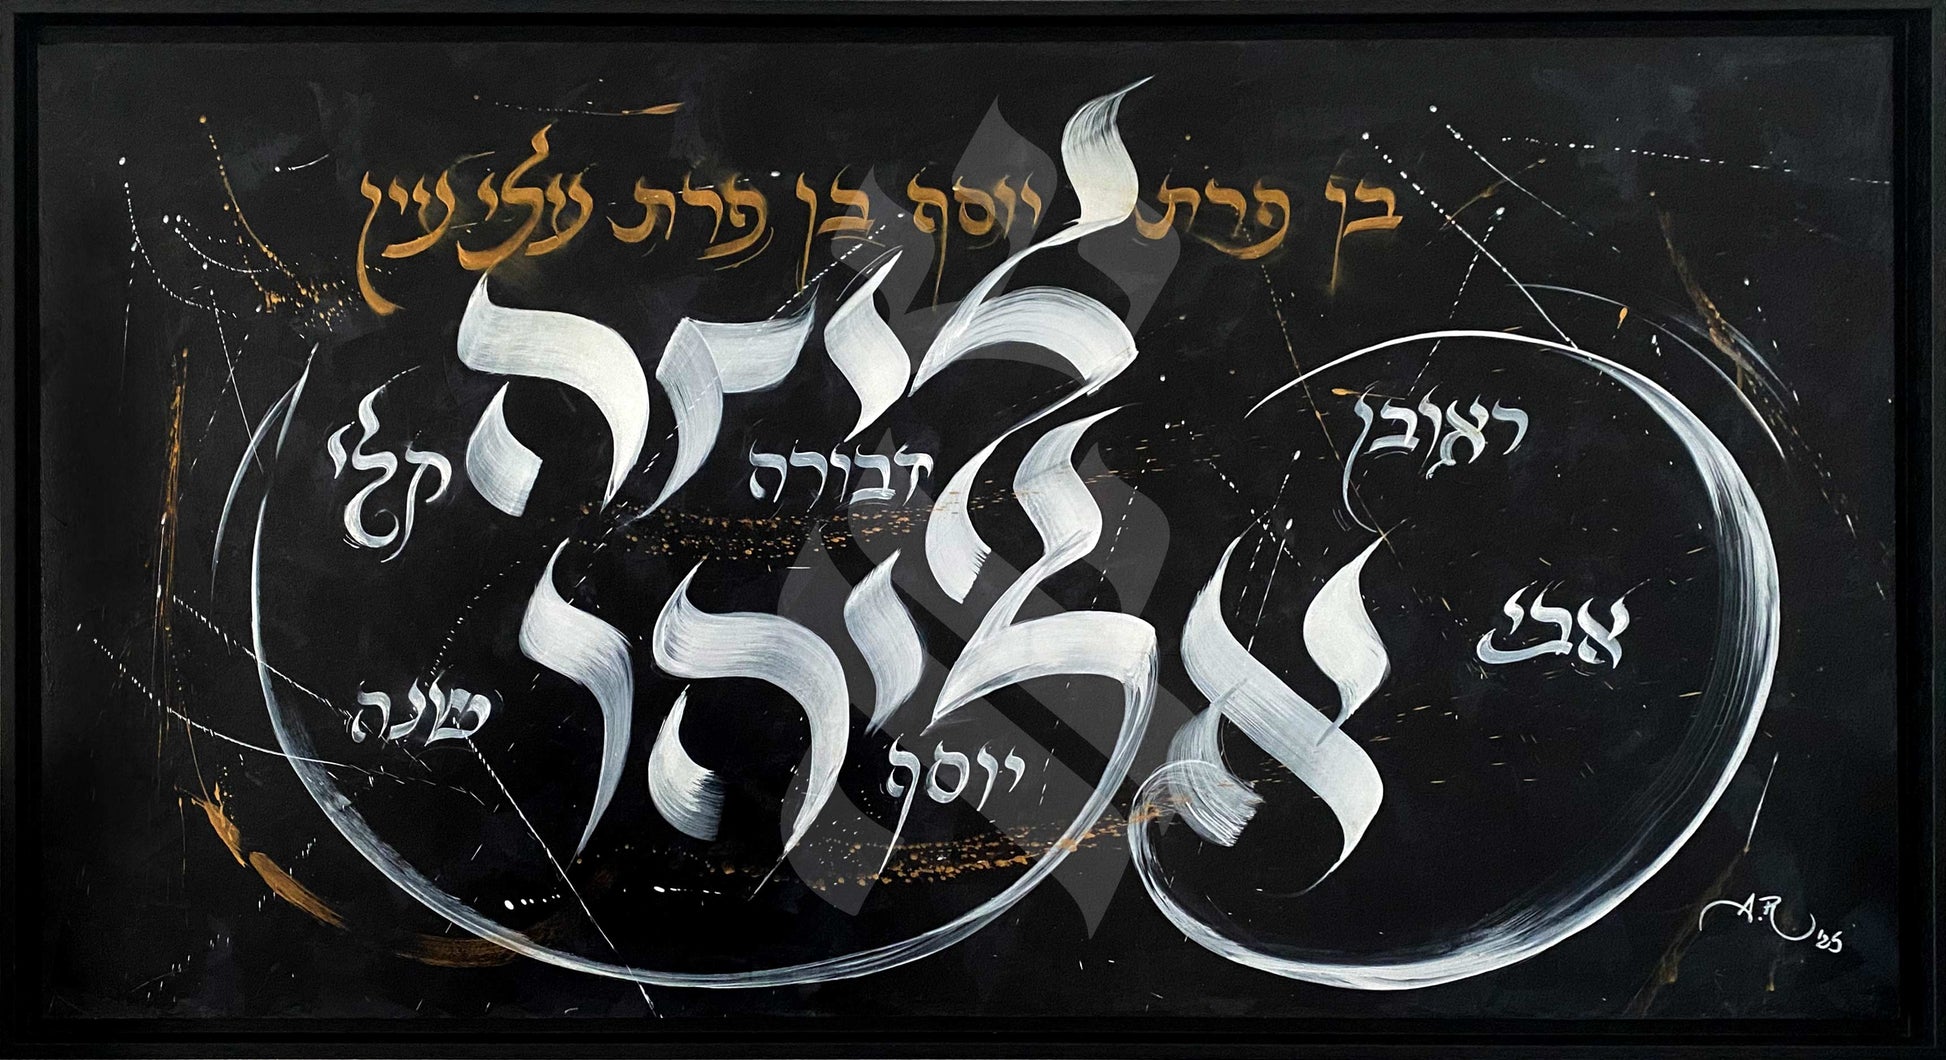 בן פרת יוסף בן פרת עלי עין
ליזה
ראובן
דבורה
קלי
אליהו
אבי
שנה
יוסף
A.R